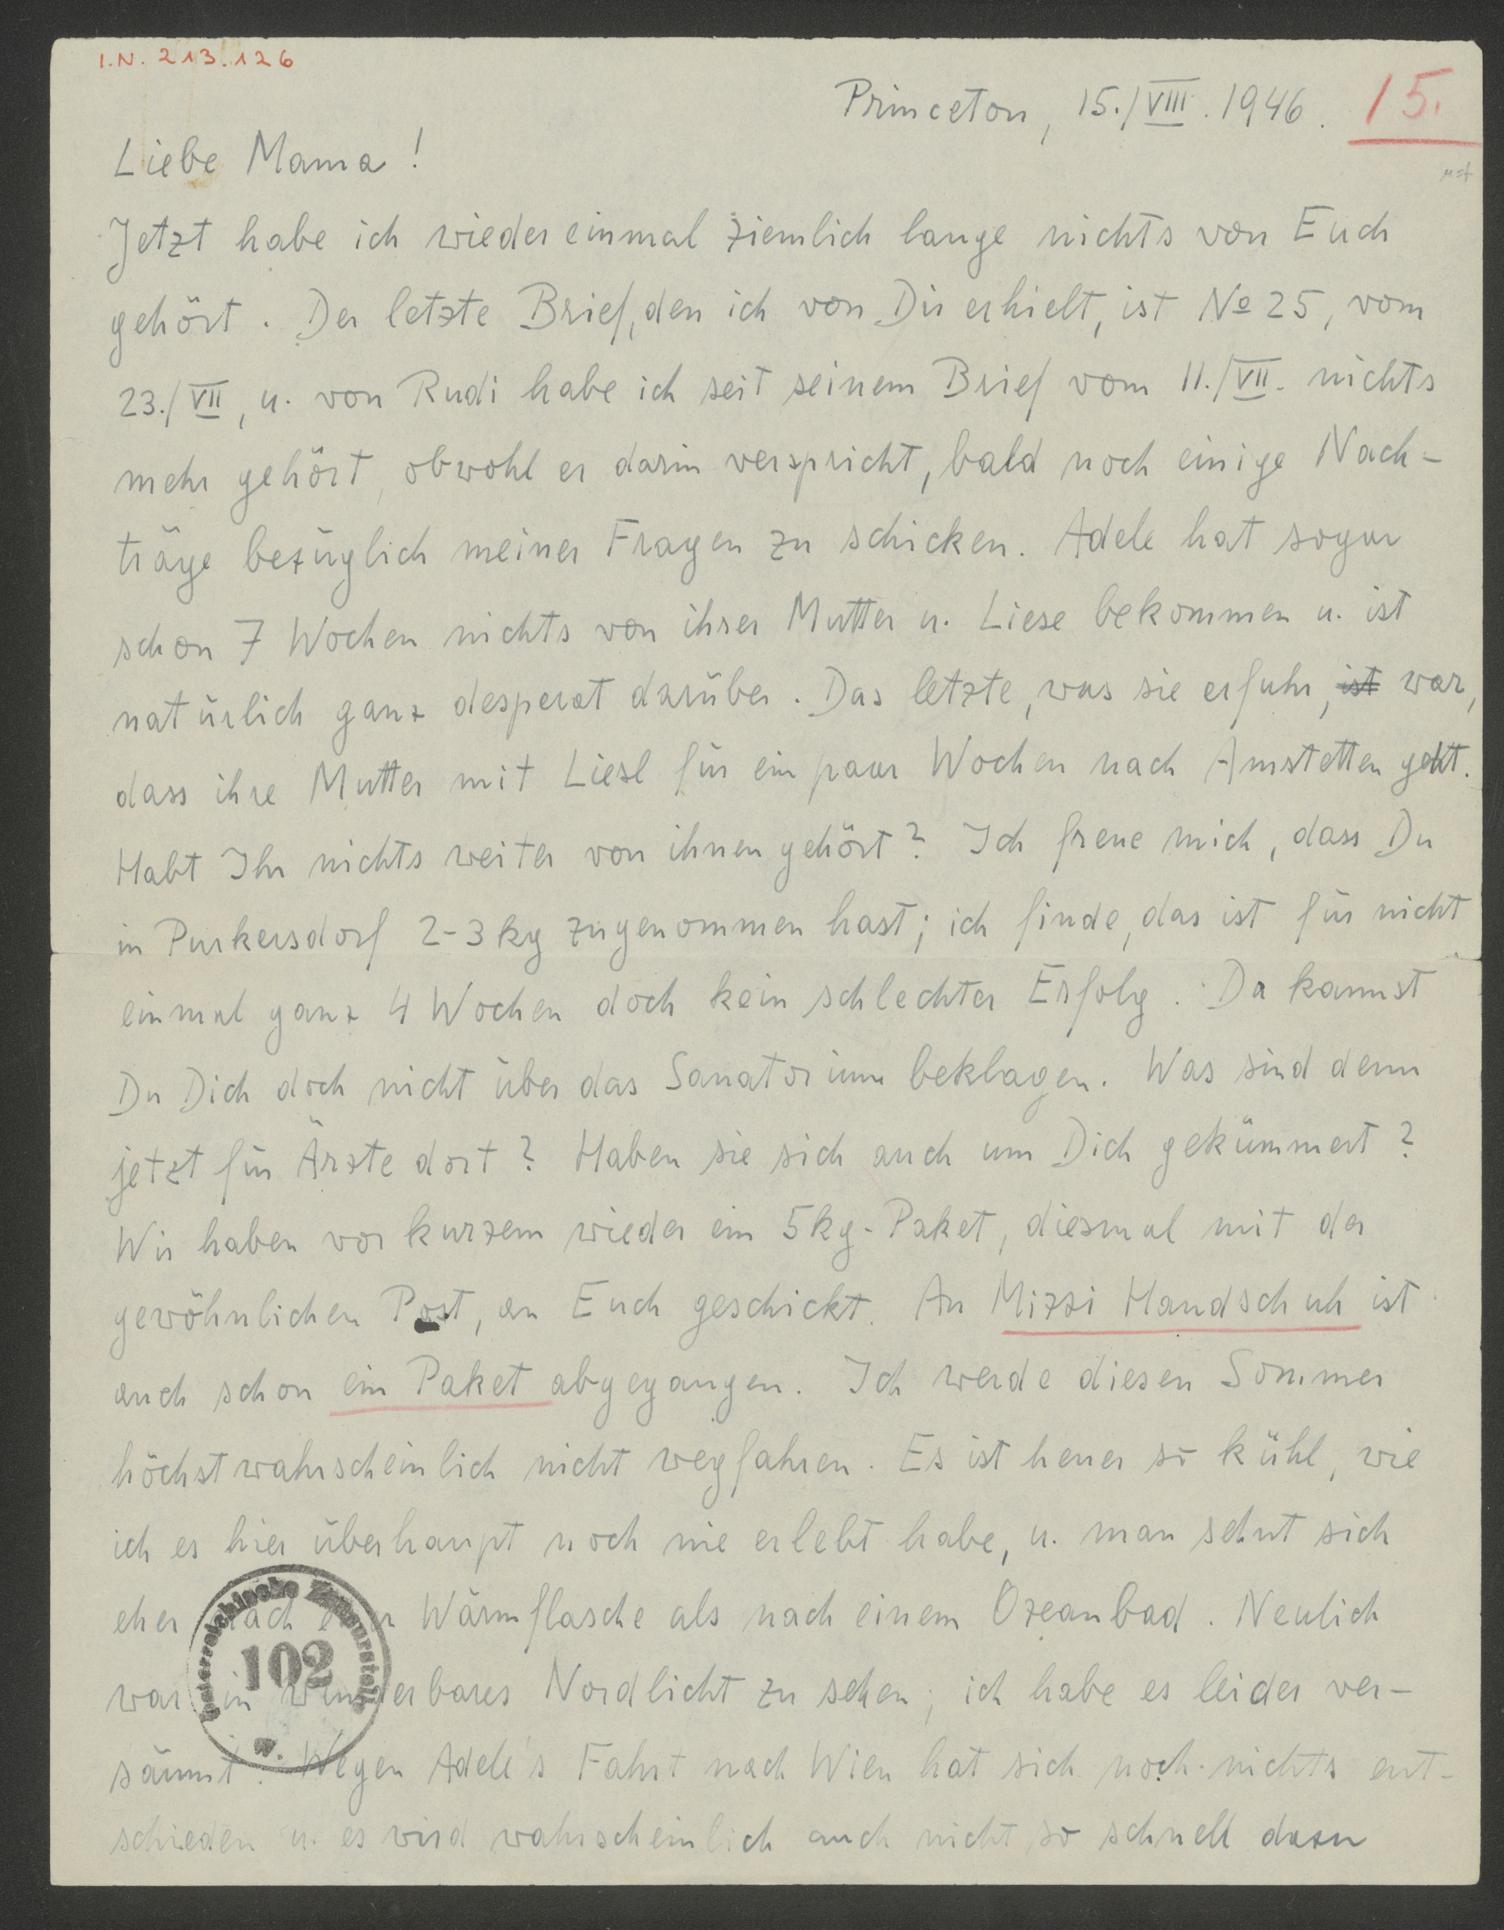 I.N. 213.126
Princeton, 15./VIII. 1946. 15.
Liebe Mama!
Jetzt habe ich wieder einmal ziemlich lange nichts von Euch
gehört. Der letzte Brief, den ich von Dir erhielt, ist No 25, vom
23./VII, u. von Rudi habe ich seit seinem Brief vom 11./VII. nichts
mehr gehört, obwohl er darin verspricht, bald noch einige Nach-
träge bezüglich meiner Fragen zu schicken. Adele hat sogar
schon 7 Wochen nichts von ihrer Mutter u. Liese bekommen u. ist
natürlich ganz desperat darüber. Das letzte, was sie erfuhr, ist war,
dass ihre Mutter mit Liesl für ein paar Wochen nach Amstetten geht.
Habt Ihr nichts weiter von ihnen gehört? Ich freue mich, dass Du
in Purkersdorf 2-3 kg zugenommen hast; ich finde, das ist für nicht
einmal ganz 4 Wochen doch kein schlechter Erfolg. Da kannst
Du Dich doch nicht über das Sanatorium beklagen. Was sind denn
jetzt für Ärzte dort? Haben sie sich auch um Dich gekümmert?
Wir haben vor kurzem wieder ein 5kg-Paket, diesmal mit der
gewöhnlichen Post, an Euch geschickt. An Mizzi Handschuh ist
auch schon ein Paket abgegangen. Ich werde diesen Sommer
höchstwahrscheinlich nicht wegfahren. Es ist heuer so kühl, wie
ich es hier überhaupt noch nie erlebt habe, u. man sehnt sich
eher nach einer Wärmflasche als nach einem Ozeanbad. Neulich
war ein wunderbares Nordlicht zu sehen; ich habe es leider ver-
säumt. Wegen Adele's Fahrt nach Wien hat sich noch nichts ent-
schieden u. es wird wahrscheinlich auch nicht so schnell dazu
Österreichische Zensurstelle
102